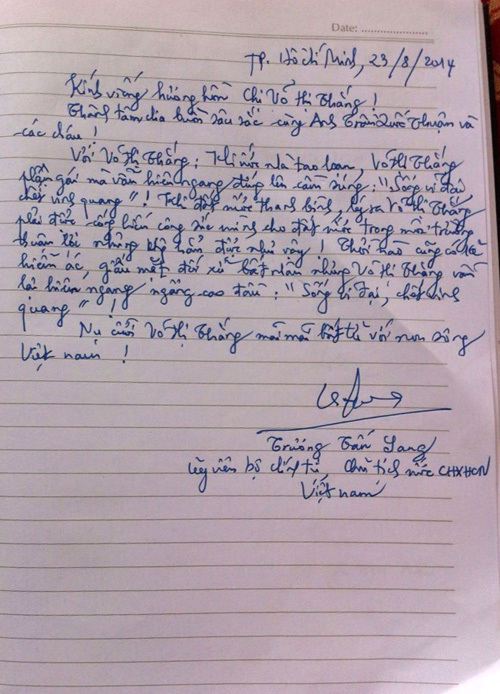 Date: ....................
TP. Hồ Chí Minh, 23/8/2014
Kính viếng hương hồn Chị Võ Thị Thắng !
Thành tâm chia buồn sâu sắc cùng Anh Trần Quốc Thuận và
các cháu !
Với Võ Thị Thắng : Khi nước nhà tao loạn, Võ Thị Thắng
phận gái mà vẫn hiên ngang đứng lên cầm súng : "Sống vĩ đại
chết vinh quang" ! Khi đất nước thanh bình, lý ra Võ Thị Thắng
phải được cống hiến công sức mình cho đất nước trong môi trường
thuận lợi nhưng khó hơn được như vậy ! Thời nào cũng có kẻ
hiểm ác, giấu mặt đối xử bất nhân nhưng Võ Thị Thắng vẫn
lại hiên ngang ngẩng cao đầu : "Sống vĩ đại, chết vinh
quang" !
Nụ cười Võ Thị Thắng mãi mãi bất tử với non sông
Việt nam !
Trương Tấn Sang
Ủy viên bộ chính trị, Chủ tịch nước CHXHCN
Việt nam